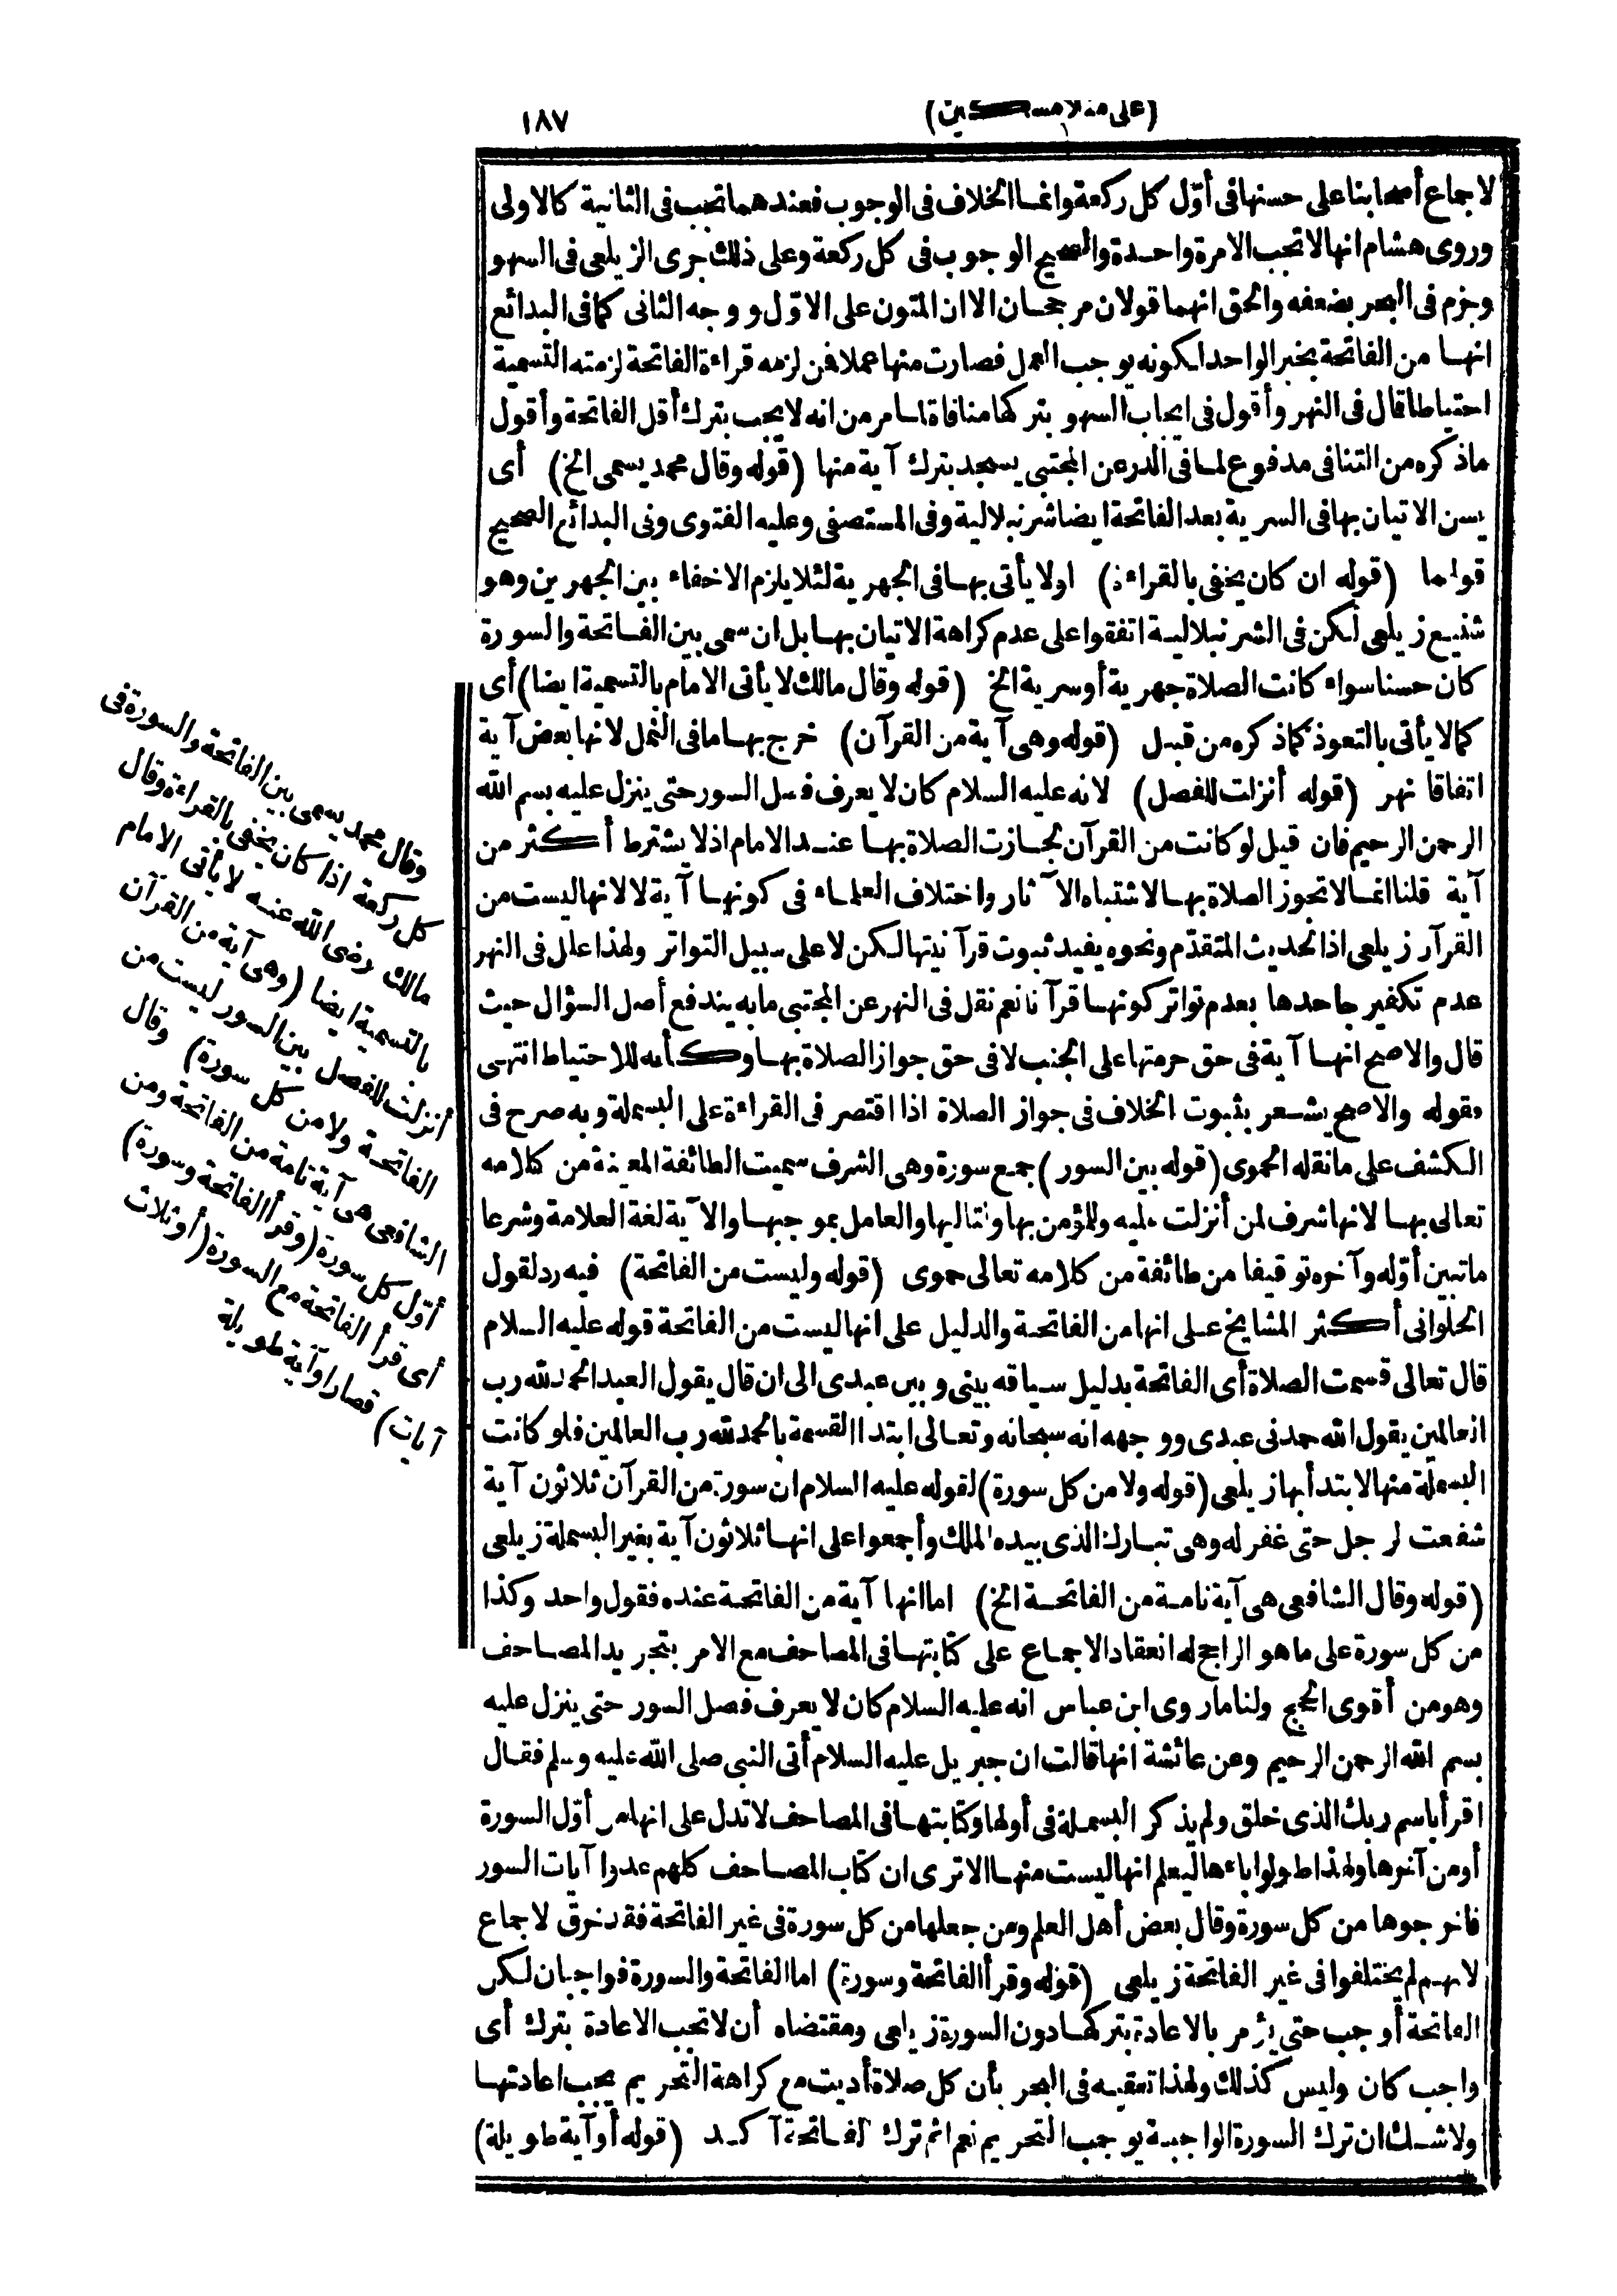 (على منلا مسكين)
١٨٧
لاجماع أصحابنا على حسنها فى أوّل كل ركعة وانما الخلاف فى الوجوب فعندهما تجب فى الثانية كالاولى
وروى هشام انها لا تجب الا مرة واحدة والصحيح الوجوب فى كل ركعة وعلى ذلك جرى الزيلعى فى السهو
وجزم فى البحر بضعفه والحق انهما قولان مرجحان الا ان المتون على الاوّل ووجه الثانى كما فى البدائع
انها من الفاتحة بخبر الواحد لكونه يوجب العمل فصارت منها عملا فمن لزمه قراءة الفاتحة لزمته التسمية
احتياطا قال فى النهر وأقول فى ايجاب السهو بتركها منافاة لما مر من انه لا يجب بترك أقل الفاتحة وأقول
ماذكره من التنافى مدفوع لما فى الدر عن المجتبى يسجد بترك آية منها (قوله وقال محمد يسمى الخ) أى
يسن الاتيان بها فى السرية بعد الفاتحة ايضا شرنبلالية وفى المستصفى وعليه الفتوى وفى البدائع الصحيح
قولهما (قوله ان كان يخفى بالقراءة) اولا يأتى بها فى الجهرية لئلا يلزم الاخفاء بين الجهرين وهو
شنيع زيلعى لكن فى الشرنبلالية اتفقوا على عدم كراهة الاتيان بها بل ان سمى بين الفاتحة والسورة
كان حسنا سواء كانت الصلاة جهرية أو سرية الخ (قوله وقال مالك لا يأتى الامام بالتسمية ايضا) أى
كما لا يأتى بالتعوذ كماذكره من قبل (قوله وهى آية من القرآن) خرج بها ما فى النمل لانها بعض آية
اتفاقا نهر (قوله أنزلت للفصل) لانه عليه السلام كان لا يعرف فصل السور حتى ينزل عليه بسم الله
الرحمن الرحيم فان قيل لو كانت من القرآن لجازت الصلاة بها عند الامام اذ لا يشترط أكثر من
آية قلنا انما لا تجوز الصلاة بها لاشتباه الآثار واختلاف العلماء فى كونها آية لا لانها ليست من
القرآن زيلعى اذ الحديث المتقدّم ونحوه يفيد ثبوت قرآنيتها لكن لا على سبيل التواتر ولهذا علل فى النهر
عدم تكفير جاحدها بعدم تواتر كونها قرآنا نعم نقل فى النهر عن المجتبى ما به يندفع أصل السؤال حيث
قال والاصح انها آية فى حق حرمتها على الجنب لا فى حق جواز الصلاة بها وكأنه للاحتياط انتهى
فقوله والاصح يشعر بثبوت الخلاف فى جواز الصلاة اذا اقتصر فى القراءة على البسملة وبه صرح فى
الكشف على ما نقله الحموى (قوله بين السور) جمع سورة وهى الشرف سميت الطائفة المعينة من كلامه
تعالى بها لانها شرف لمن أنزلت عليه وللمؤمن بها ولتاليها والعامل بموجبها والآية لغة العلامة وشرعا
ما تبين أوّله وآخره توقيفا من طائفة من كلامه تعالى حموى (قوله وليست من الفاتحة) فيه رد لقول
الحلوانى أكثر المشايخ على انها من الفاتحة والدليل على انها ليست من الفاتحة قوله عليه السلام
قال تعالى قسمت الصلاة أى الفاتحة بدليل سياقه بينى وبين عبدى الى ان قال يقول العبد الحمد لله رب
العالمين يقول الله حمدنى عبدى ووجهه انه سبحانه وتعالى ابتدا القسمة بالحمد لله رب العالمين فلو كانت
البسملة منها لابتدأ بها زيلعى (قوله ولا من كل سورة) لقوله عليه السلام ان سورة من القرآن ثلاثون آية
شفعت لرجل حتى غفر له وهى تبارك الذى بيده الملك وأجمعوا على انها ثلاثون آية بغير البسملة زيلعى
(قوله وقال الشافعى هى آية تامة من الفاتحة الخ) اما انها آية من الفاتحة عنده فقول واحد وكذا
من كل سورة على ما هو الراجح له انعقاد الاجماع على كتابتها فى المصاحف مع الامر بتجريد المصاحف
وهو من أقوى الحجج ولنا ما روى ابن عباس انه عليه السلام كان لا يعرف فصل السور حتى ينزل عليه
بسم الله الرحمن الرحيم وعن عائشة انها قالت ان جبريل عليه السلام أتى النبى صلى الله عليه وسلم فقال
اقرأ باسم ربك الذى خلق ولم يذكر البسملة فى أولها وكتابتها فى المصاحف لا تدل على انها من أوّل السورة
أو من آخرها ولهذا طولوا باءها ليعلم انها ليست منها الا ترى ان كتاب المصاحف كلهم عدوا آيات السور
فاخرجوها من كل سورة وقال بعض أهل العلم ومن جعلها من كل سورة فى غير الفاتحة فقد خرق الاجماع
لانهم لم يختلفوا فى غير الفاتحة زيلعى (قوله وقرأ الفاتحة وسورة) اما الفاتحة والسورة فواجبان لكن
الفاتحة أوجب حتى يؤمر بالاعادة بتركها دون السورة زيلعى ومقتضاه أن لا تجب الاعادة بترك أى
واجب كان وليس كذلك ولهذا تعقبه فى البحر بأن كل صلاة أديت مع كراهة التحريم يجب اعادتها
ولا شك ان ترك السورة الواجبة يوجب التحريم نعم اثم ترك الفاتحة آكد (قوله أو آية طويلة)
وقال محمد يسمى بين الفاتحة والسورة فى
كل ركعة اذا كان يخفى بالقراءة وقال
مالك رضى الله عنه لا يأتى الامام
بالتسمية ايضا (وهى آية من القرآن
أنزلت للفصل بين السور ليست من
الفاتحة ولا من كل سورة) وقال
الشافعى هى آية تامة من الفاتحة ومن
أوّل كل سورة (وقرأ الفاتحة وسورة)
أى قرأ الفاتحة مع السورة (أو ثلاث
آيات) قصار او آية طويلة